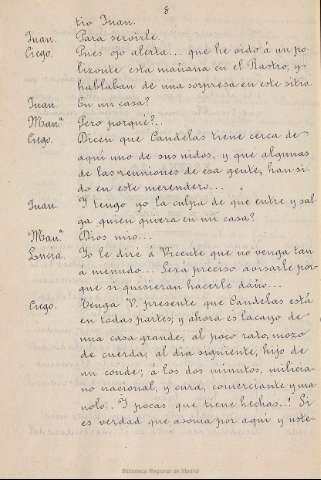 8
tío Juan.
Juan. Para servirle.
Ciego. Pues ojo alerta... que he oido á un po-
lizonte esta mañana en el Rastro, y
hablaban de una sorpresa en este sitio
Juan. En mi casa?
Man.ª Pero porqué?..
Ciego. Dicen que Candelas tiene cerca de
aquí uno de sus nidos, y que algunas
de las reuniones de esa gente, han si-
do en este merendero...
Juan. Y tengo yo la culpa de que entre y sal-
ga quien quiera en mi casa?
Man.ª Dios mio...
Lucía. Yo le diré á Vicente que no venga tan
á menudo... Será preciso avisarle por-
que si quisieran hacerle daño...
Ciego. Tenga V. presente que Candelas está
en todas partes; y ahora es lacayo de
una casa grande, al poco rato, mozo
de cuerda, al dia siguiente, hijo de
un conde; á los dos minutos, milicia-
no nacional, y cura, comerciante y ma-
nolo.. Y pocas que tiene hechas..! Si
es verdad que asoma por aquí y uste-
Biblioteca Regional de Madrid